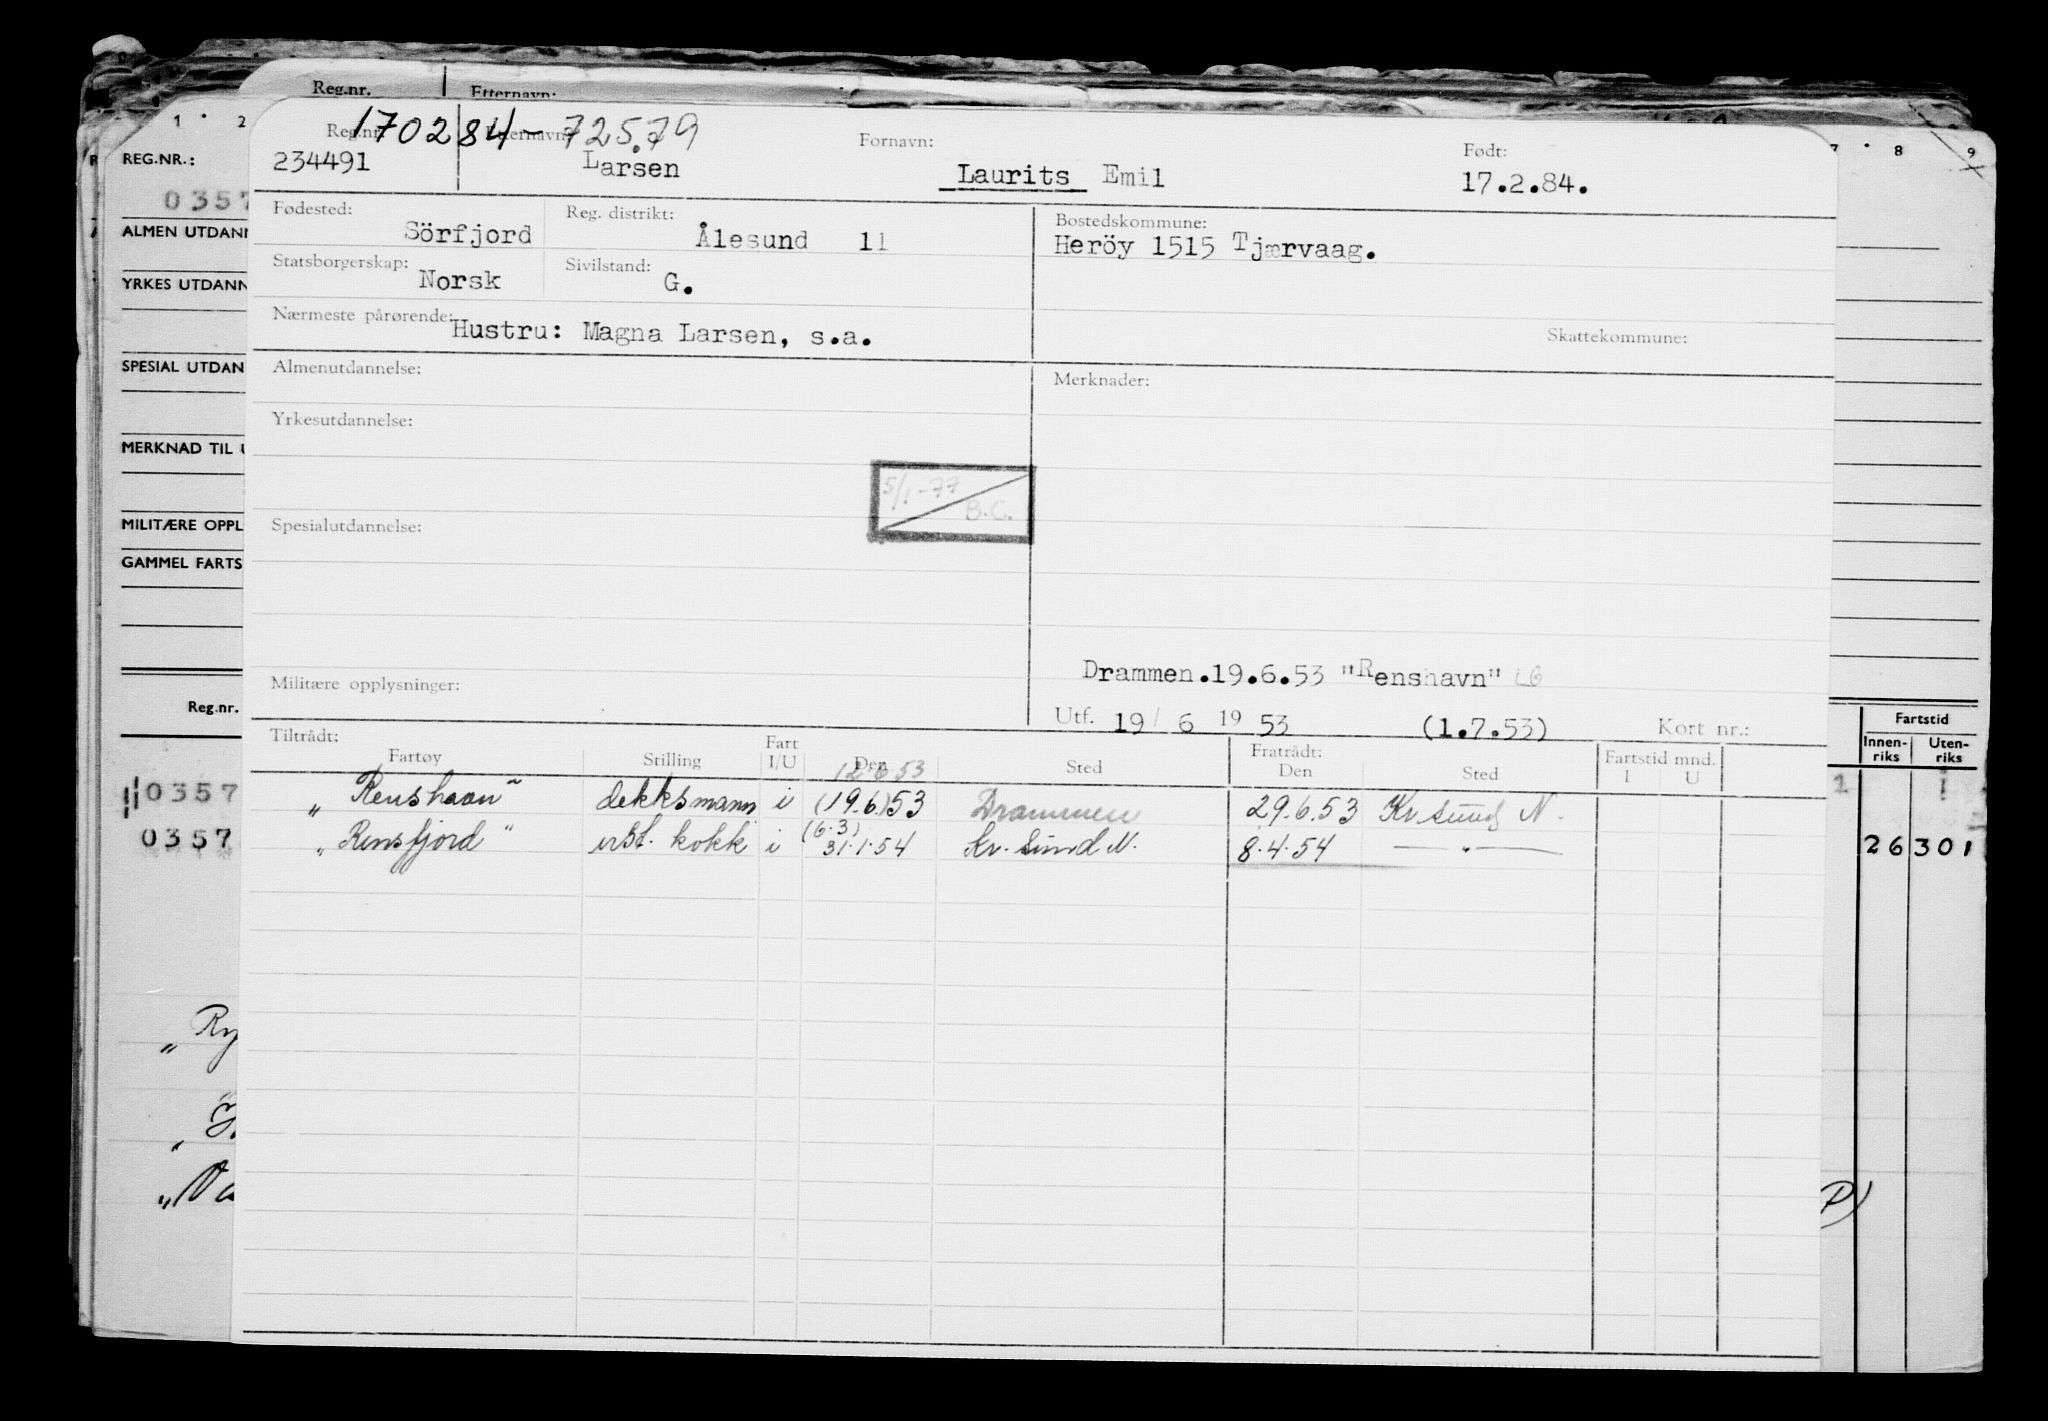 Reg.nr. Etternavn:
1 2 7 8 9
170284-72579
Reg.nr. Etternavn: Fornavn: Født:
234491 Larsen Laurits Emil 17.2.84.
REG.NR.:
0357
Fødested: Sörfjord Reg. distrikt: Ålesund 11 Bostedskommune:
Heröy 1515 Tjærvaag.
ALMEN UTDANN
Statsborgerskap: Norsk Sivilstand: G.
YRKES UTDANN
Nærmeste pårørende: Hustru: Magna Larsen, s.a. Skattekommune:
SPESIAL UTDAN
Almenutdannelse: Merknader:
Yrkesutdannelse:
MERKNAD TIL U
5/1-77
B.C.
MILITÆRE OPPL
Spesialutdannelse:
GAMMEL FARTS
Drammen.19.6.53 "Renshavn"
Militære opplysninger:
Utf. 19/ 6 19 53 (1.7.53) Kort nr.:
Reg.nr. Fartstid
Innen-riks Uten-riks
Tiltrådt: Fratrådt:
Fartøy Stilling Fart I/U Den Sted Den Sted Fartstid mnd. I U
12.6.53
0357 „Renshavn" dekksmann i (19.6.)53 Drammen 29.6.53 Kr.sund N. 1 1
(6.3)
0357 „Rensfjord" erst. kokk i 31.1.54 Kr. sund N. 8.4.54 —"— 26 301
„Ry
„Va
P)